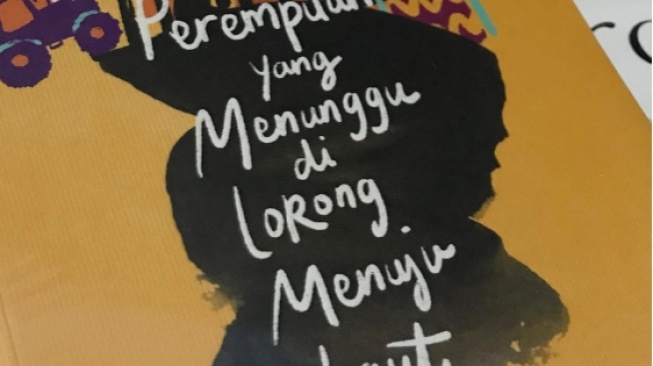 Perempuan
yang
Menunggu
di
Lorong
Menuju
Laut